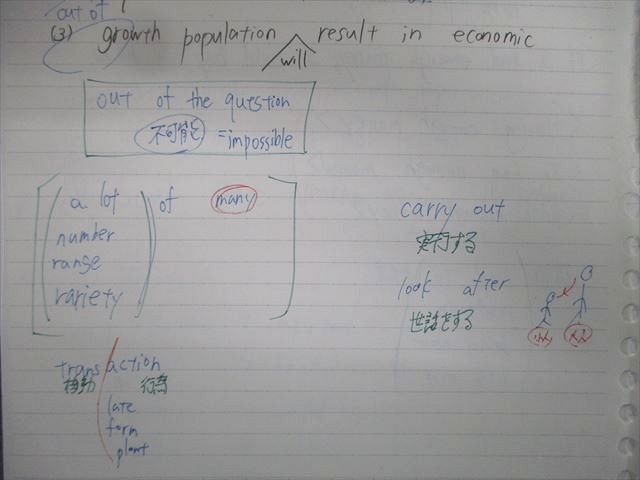 out of
(3) growth population will result in economic
out of the question
不可能 =impossible
a lot of many
number
range
variety
carry out
実行する
look after
世話をする
trans action
移動 行為
late
form
plant